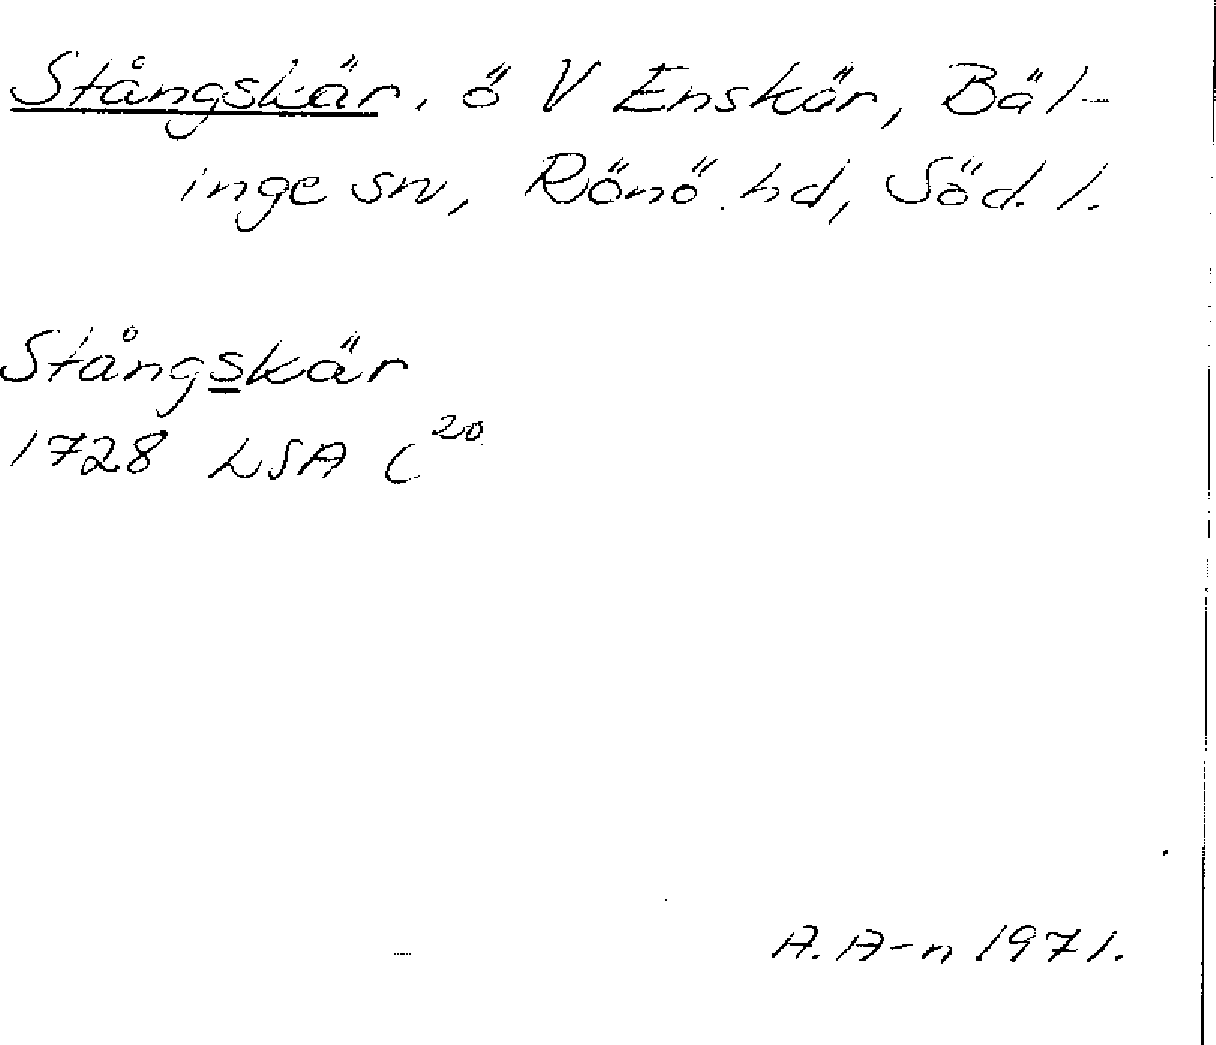 Stångskär, ö V Enskär, Bäl-
inge sn, Rönö hd, Söd. l.
Stångskär
1728 LSA C²⁰
A. A-n 1971.